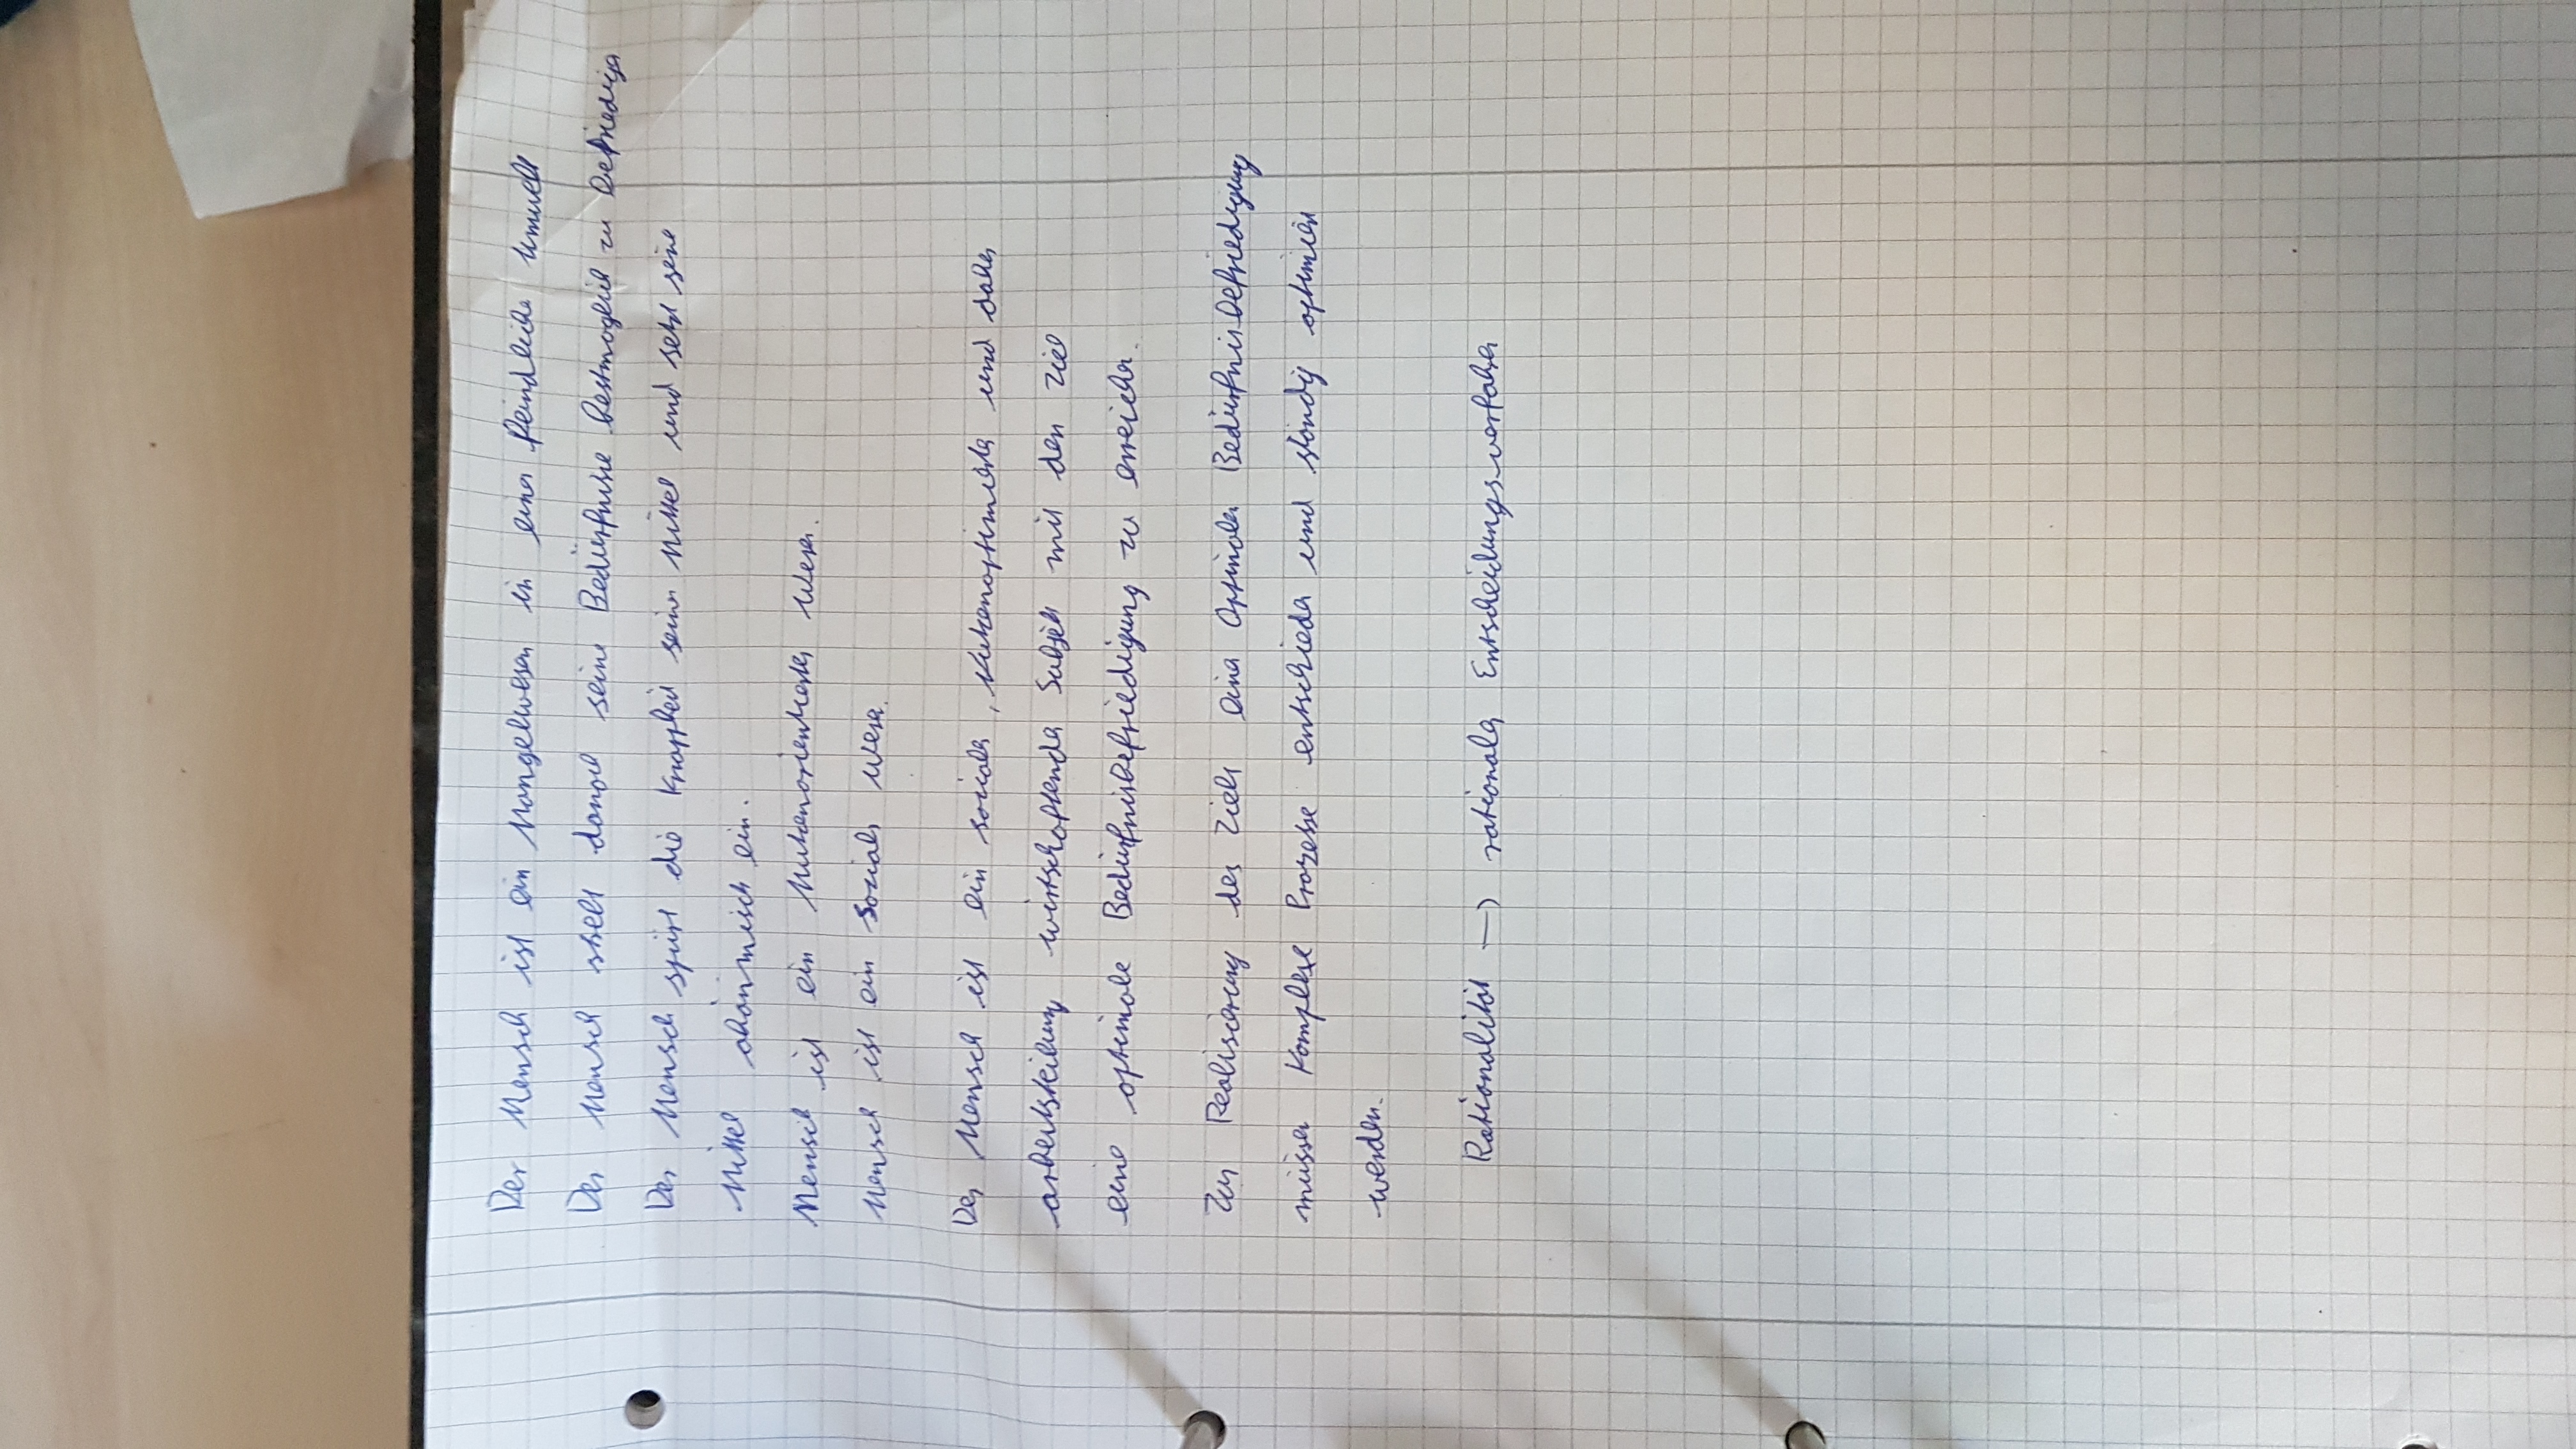 Der Mensch ist ein Mangelwesen in einer feindlichen Umwelt
Der Mensch strebt danach seine Bedürfnisse bestmöglich zu befriedigen
Der Mensch spürt die Knappheit seiner Mittel und setzt seine
Mittel ökonomisch ein.
Mensch ist ein Nutzenorientiertes Wesen.
Mensch ist ein Soziales Wesen.
Der Mensch ist ein soziales, Nutzenoptimiertes und daher
arbeitsteilung wirtschaftendes Subjekt mit den Ziel
eine optimale Bedürfnisbefriedigung zu erreichen.
Zur Realisierung des Ziels einer Optimalen Bedürfnisbefriedigung
müssen Komplexe Prozesse entschieden und ständig optimiert
werden.
Rationalität → rationales Entscheidungsverfahren